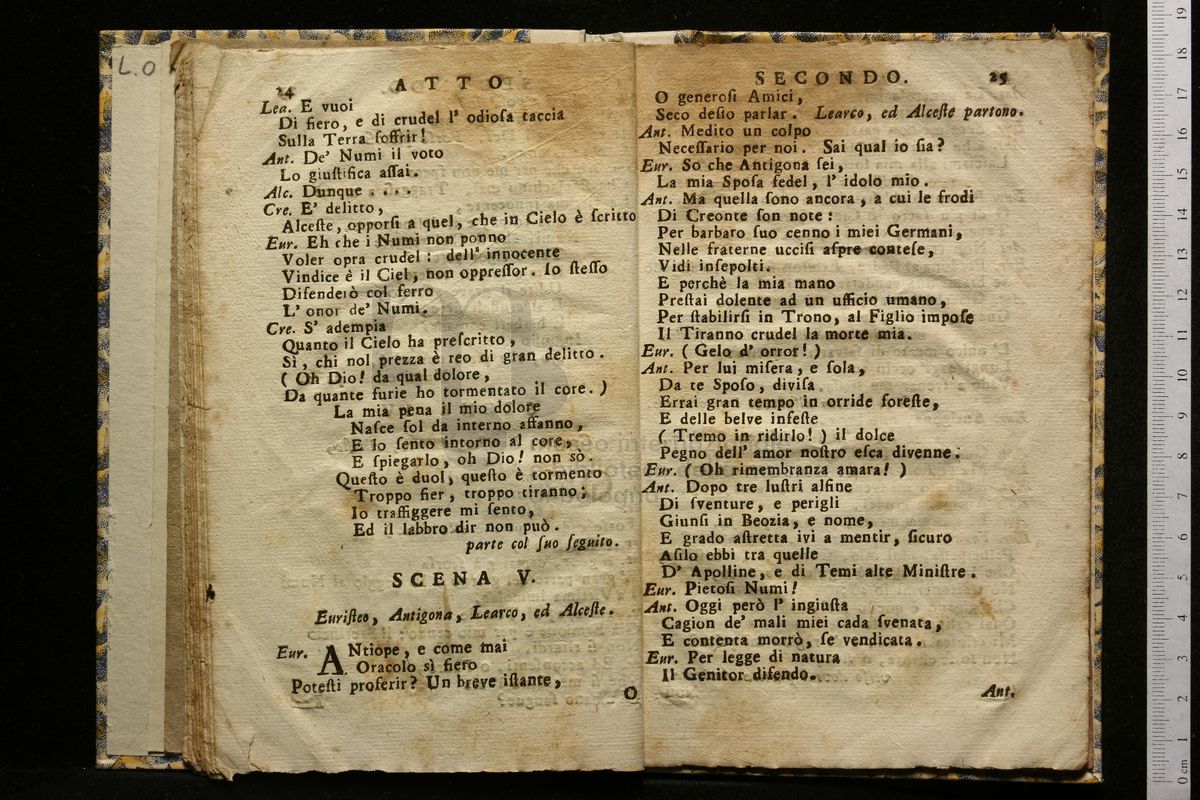 L.O
24 ATTO
Lea. E vuoi
Di fiero, e di crudel l' odioſa taccia
Sulla Terra ſoffrir!
Ant. De' Numi il voto
Lo giuſtifica aſſai.
Alc. Dunque . . . .
Cre. E' delitto,
Alceſte, opporſi a quel, che in Cielo è ſcritto
Eur. Eh che i Numi non ponno
Voler opra crudel: dell' innocente
Vindice è il Ciel, non oppreſſor. Io ſteſſo
Difenderò col ferro
L' onor de' Numi.
Cre. S' adempia
Quanto il Cielo ha preſcritto,
Sì, chi nol prezza è reo di gran delitto.
( Oh Dio! da qual dolore,
Da quante furie ho tormentato il core. )
La mia pena il mio dolore
Naſce ſol da interno affanno,
E lo ſento intorno al core,
E ſpiegarlo, oh Dio! non sò.
Queſto è duol, queſto è tormento
Troppo fier, troppo tiranno;
Io traffiggere mi ſento,
Ed il labbro dir non può.
parte col ſuo ſeguito.
SCENA V.
Euriſteo, Antigona, Learco, ed Alceſte.
Eur. ANtiope, e come mai
Oracolo sì fiero
Poteſti proferir? Un breve iſtante,
O
SECONDO. 25
O generoſi Amici,
Seco deſio parlar. Learco, ed Alceſte partono.
Ant. Medito un colpo
Neceſſario per noi. Sai qual io ſia?
Eur. So che Antigona ſei,
La mia Spoſa fedel, l' idolo mio.
Ant. Ma quella ſono ancora, a cui le frodi
Di Creonte ſon note:
Per barbaro ſuo cenno i miei Germani,
Nelle fraterne ucciſi aſpre conteſe,
Vidi inſepolti.
E perchè la mia mano
Preſtai dolente ad un ufficio umano,
Per ſtabilirſi in Trono, al Figlio impoſe
Il Tiranno crudel la morte mia.
Eur. ( Gelo d' orror! )
Ant. Per lui miſera, e ſola,
Da te Spoſo, diviſa
Errai gran tempo in orride foreſte,
E delle belve infeſte
( Tremo in ridirlo! ) il dolce
Pegno dell' amor noſtro eſca divenne.
Eur. ( Oh rimembranza amara! )
Ant. Dopo tre luſtri alfine
Di ſventure, e perigli
Giunſi in Beozia, e nome,
E grado aſtretta ivi a mentir, ſicuro
Aſilo ebbi tra quelle
D' Apolline, e di Temi alte Miniſtre.
Eur. Pietoſi Numi!
Ant. Oggi però l' ingiuſta
Cagion de' mali miei cada ſvenata,
E contenta morrò, ſe vendicata.
Eur. Per legge di natura
Il Genitor difendo.
Ant.